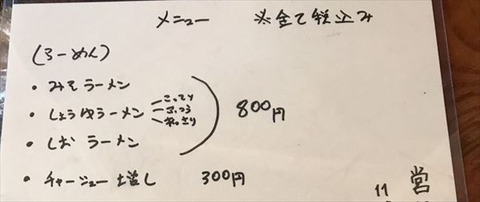 メニュー ※全て税込み
(らーめん)
・みそラーメン
・しょうゆラーメン こってり
さっぱり
・しお ラーメン
800円
・チャーシュー増し 300円
営
11